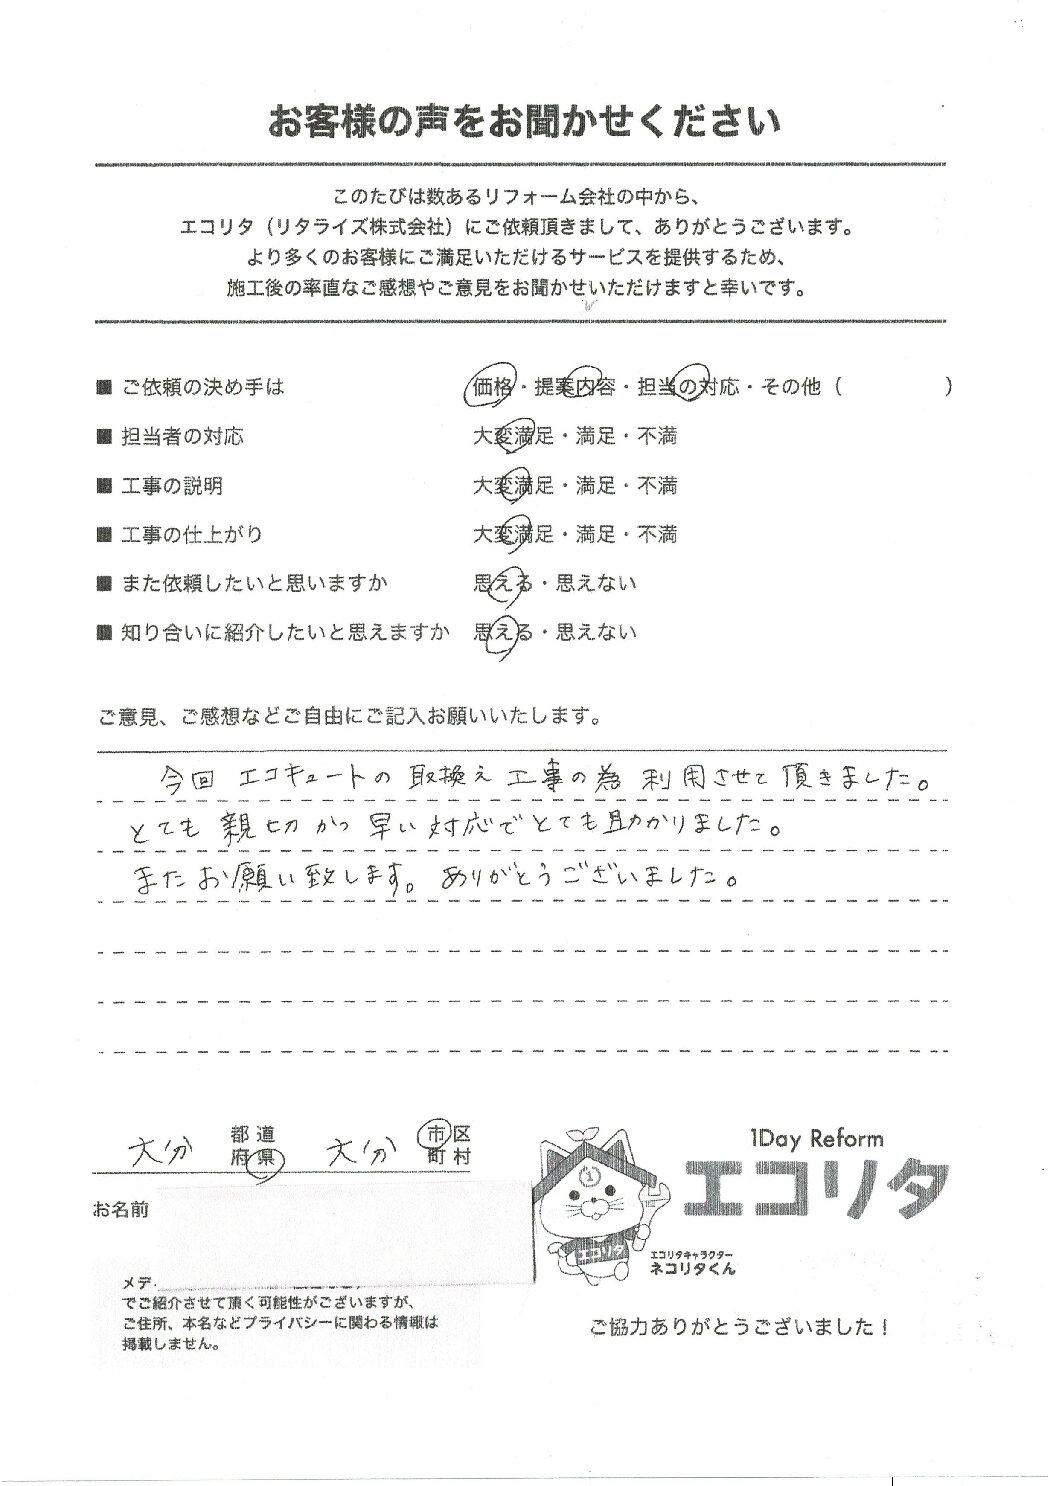 お客様の声をお聞かせください
このたびは数あるリフォーム会社の中から、
エコリタ（リタライズ株式会社）にご依頼頂きまして、ありがとうございます。
より多くのお客様にご満足いただけるサービスを提供するため、
施工後の率直なご感想やご意見をお聞かせいただけますと幸いです。
■ ご依頼の決め手は 価格・提案内容・担当の対応・その他（ ）
■ 担当者の対応 大変満足・満足・不満
■ 工事の説明 大変満足・満足・不満
■ 工事の仕上がり 大変満足・満足・不満
■ また依頼したいと思いますか 思える・思えない
■ 知り合いに紹介したいと思えますか 思える・思えない
ご意見、ご感想などご自由にご記入お願いいたします。
今回 エコキュートの 取換え 工事の為 利用させて頂きました。
とても 親切 かつ 早い 対応で とても 助かりました。
また お願い致します。ありがとうございました。
大分 都道府県 大分 市区町村
お名前
メデ
でご紹介させて頂く可能性がございますが、
ご住所、本名などプライバシーに関わる情報は
掲載しません。
1Day Reform
エコリタ
1
エコリタ
エコリタキャラクター
ネコリタくん
ご協力ありがとうございました！